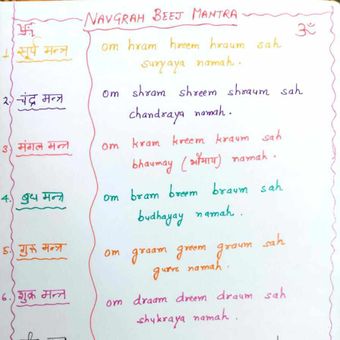 NAVGRAH BEEJ MANTRA
ॐ
1. सूर्य मन्त्र
om hram hreem hraum sah
suryaya namah.
2. चंद्र मन्त्र
om shram shreem shraum sah
chandraya namah.
3. मंगल मन्त्र
om kram kreem kraum sah
bhaumay (भौमाय) namah.
4. बुध मन्त्र
om bram breem braum sah
budhayay namah.
5. गुरू मन्त्र
om graam greem graum sah
guruve namah.
6. शुक्र मन्त्र
om draam dreem draum sah
shukraya namah.